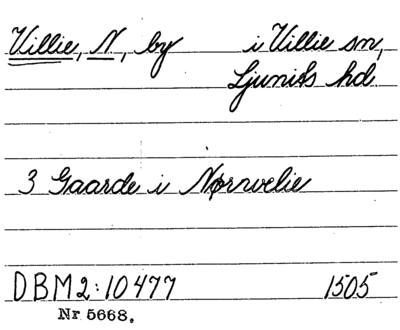 Villie, N, by i Villie sn,
Ljunits hd
3 Gaarde i Nørvelie
DBM2:10477 1505
Nr 5668.